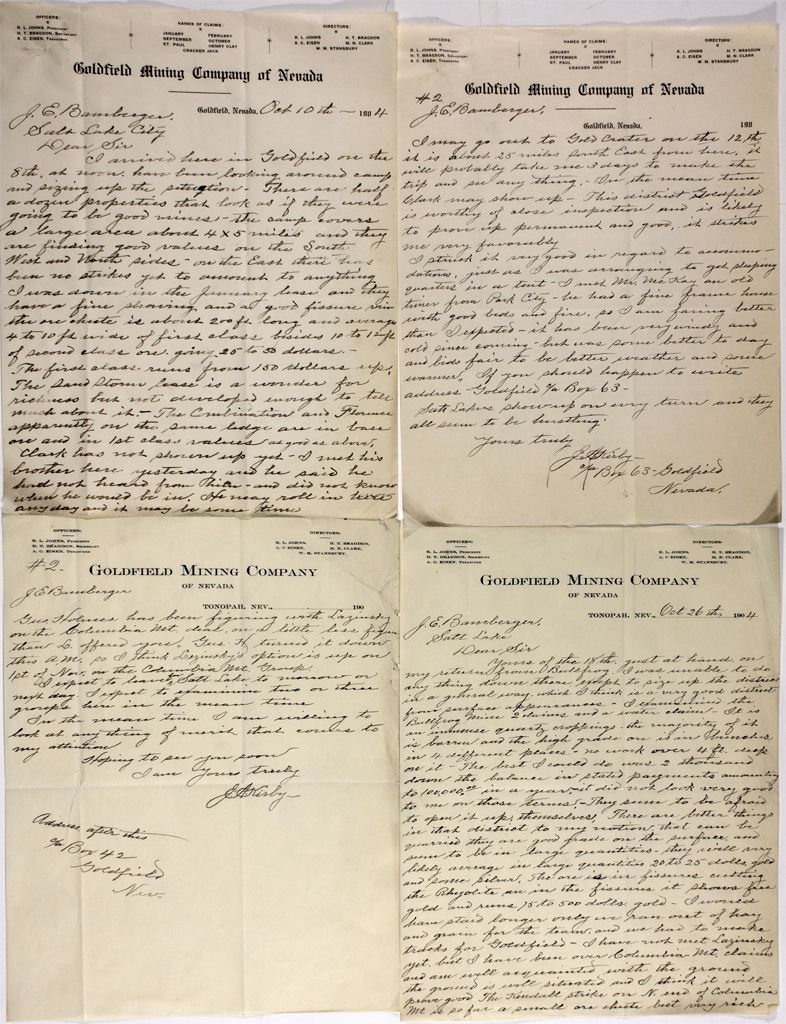 OFFICERS:
R. L. JOHNS, PRESIDENT
H. T. BRAGDON, SECRETARY
A. C. EISEN, TREASURER
NAMES OF CLAIMS:
JANUARY FEBRUARY
SEPTEMBER OCTOBER
ST. PAUL HENRY CLAY
CRACKER JACK
DIRECTORS:
R. L. JOHNS H. T. BRAGDON
A. C. EISEN M. N. CLARK
W. M. STANSBURY
Goldfield Mining Company of Nevada
Goldfield, Nevada, Oct 10th — 1904
J. E. Bamberger,
Salt Lake City
Dear Sir
I arrived here in Goldfield on the
8th, at noon, have been looking around camp
and sizing up the situation - There are half
a dozen properties that look as if they were
going to be good mines - the camp covers
a large area about 4 x 5 miles and they
are finding good values on the South
West and North sides - on the East there has
been no strikes yet to amount to anything
I was down in the January lease and they
have a fine showing, and a good fissure vein
the ore chute is about 200 ft long and average
4 to 10 ft wide of first class besides 10 to 12 ft
of second class ore, going 25 to 50 dollars. -
The first class runs from 150 dollars up.
The Sand Storm lease is a wonder for
richness but not developed enough to tell
much about it, - The Combination and Florence
apparently on the same ledge are in base
ore and in 1st class values as good as above,
Clark has not shown up yet - I met his
brother here yesterday and he said he
had not heard from him - and did not know
when he would be in. He may roll in
any day and it may be some time
OFFICERS:
R. L. JOHNS, PRESIDENT
H. T. BRAGDON, SECRETARY
A. C. EISEN, TREASURER
NAMES OF CLAIMS:
JANUARY FEBRUARY
SEPTEMBER OCTOBER
ST. PAUL HENRY CLAY
CRACKER JACK
DIRECTORS:
R. L. JOHNS H. T. BRAGDON
A. C. EISEN M. N. CLARK
W. M. STANSBURY
Goldfield Mining Company of Nevada
#2
J. E. Bamberger,
Goldfield, Nevada, 190
I may go out to Gold Crater on the 12th,
it is about 25 miles South East from here, it
will probably take me 3 days to make the
trip and see any thing, - In the mean time
Clark may show up - This district Goldfield
is worthy of close inspection and is likely
to prove up permanent and good, it strikes
me very favorably
I struck it very good in regard to accommo-
dations, just as I was arranging to get sleeping
quarters in a tent - I met Mr. McKay an old
timer from Park City - he had a fine frame house
with good beds and fire, so I am faring better
than I expected - it has been very windy and
cold since coming - but was some better to day
and bids fair to be better weather and some
warmer, If you should happen to write
address - Goldfield % Box 63 -
Salt Lakers show up on every turn and they
all seem to be hustling.
Yours truly
J A Kirby -
% Box 63 - Goldfield
Nevada.
OFFICERS:
R. L. JOHNS, PRESIDENT
H. T. BRAGDON, SECRETARY
A. C. EISEN, TREASURER
DIRECTORS:
R. L. JOHNS, H. T. BRAGDON,
A. C. EISEN, M. N. CLARK,
W. M. STANSBURY.
#2-
GOLDFIELD MINING COMPANY
OF NEVADA
J E Bamberger
TONOPAH, NEV., 190
Gus Holmes has been figuring with Lazinsky
on the Columbia Mt. deal, on a little less figure
than L. offered you, Gus H turned it down
this A.M. so I think option is up on
1st of Nov. on the Columbia Mt. Group.
I expect to leave Salt Lake to morrow or
next day I expect to examine two or three
groups here in the mean time
In the mean time I am willing to
look at any thing of merit that comes to
my attention
Hoping to see you soon
I am Yours truly
J A Kirby -
Address after this
% Box 42
Goldfield
Nev.
OFFICERS:
R. L. JOHNS, PRESIDENT
H. T. BRAGDON, SECRETARY
A. C. EISEN, TREASURER
DIRECTORS:
R. L. JOHNS, H. T. BRAGDON,
A. C. EISEN, M. N. CLARK,
W. M. STANSBURY.
GOLDFIELD MINING COMPANY
OF NEVADA
TONOPAH, NEV., Oct 26th, 1904
J. E. Bamberger,
Salt Lake
Dear Sir
Yours of the 18th, just at hand, on
my return from Bullfrog. I was unable to do
any thing down there except to size up the district
in a general way, which I think is a very good district
from surface appearances - I examined the
Bullfrog Mine 2 claims and a water claim. It is
an immense quartz croppings the majority of it
is barren and the high grade ore is in bunches
in 4 different places - no work over 4 ft. deep
on it - The best I could do was 2 thousand
down the balance in stated payments amounting
to 100,000.00 in a year, it did not look very good
to me on those terms, - They seem to be afraid
to open it up, themselves, There are better things
in that district to my notion, that can be
quarried they are good grade on the surface, and
seem to be in large quantities - they will very
likely average in large quantities 20 to 25 dolls. gold
and some silver, The ore is in fissures cutting
the Rhyolite an in the fissures it shows free
gold and runs 75 to 500 dolls. gold - I would
have staid longer only we ran out of hay
and grain for the team, and we had to make
tracks for Goldfield - I have not met Lazinsky
yet, but I have been over Columbia Mt. claims
and am well acquainted with the ground
the ground is well situated and I think it will
prove good The Kendall strike on N. end of Columbia
Mt is so far a small ore chute but very rich